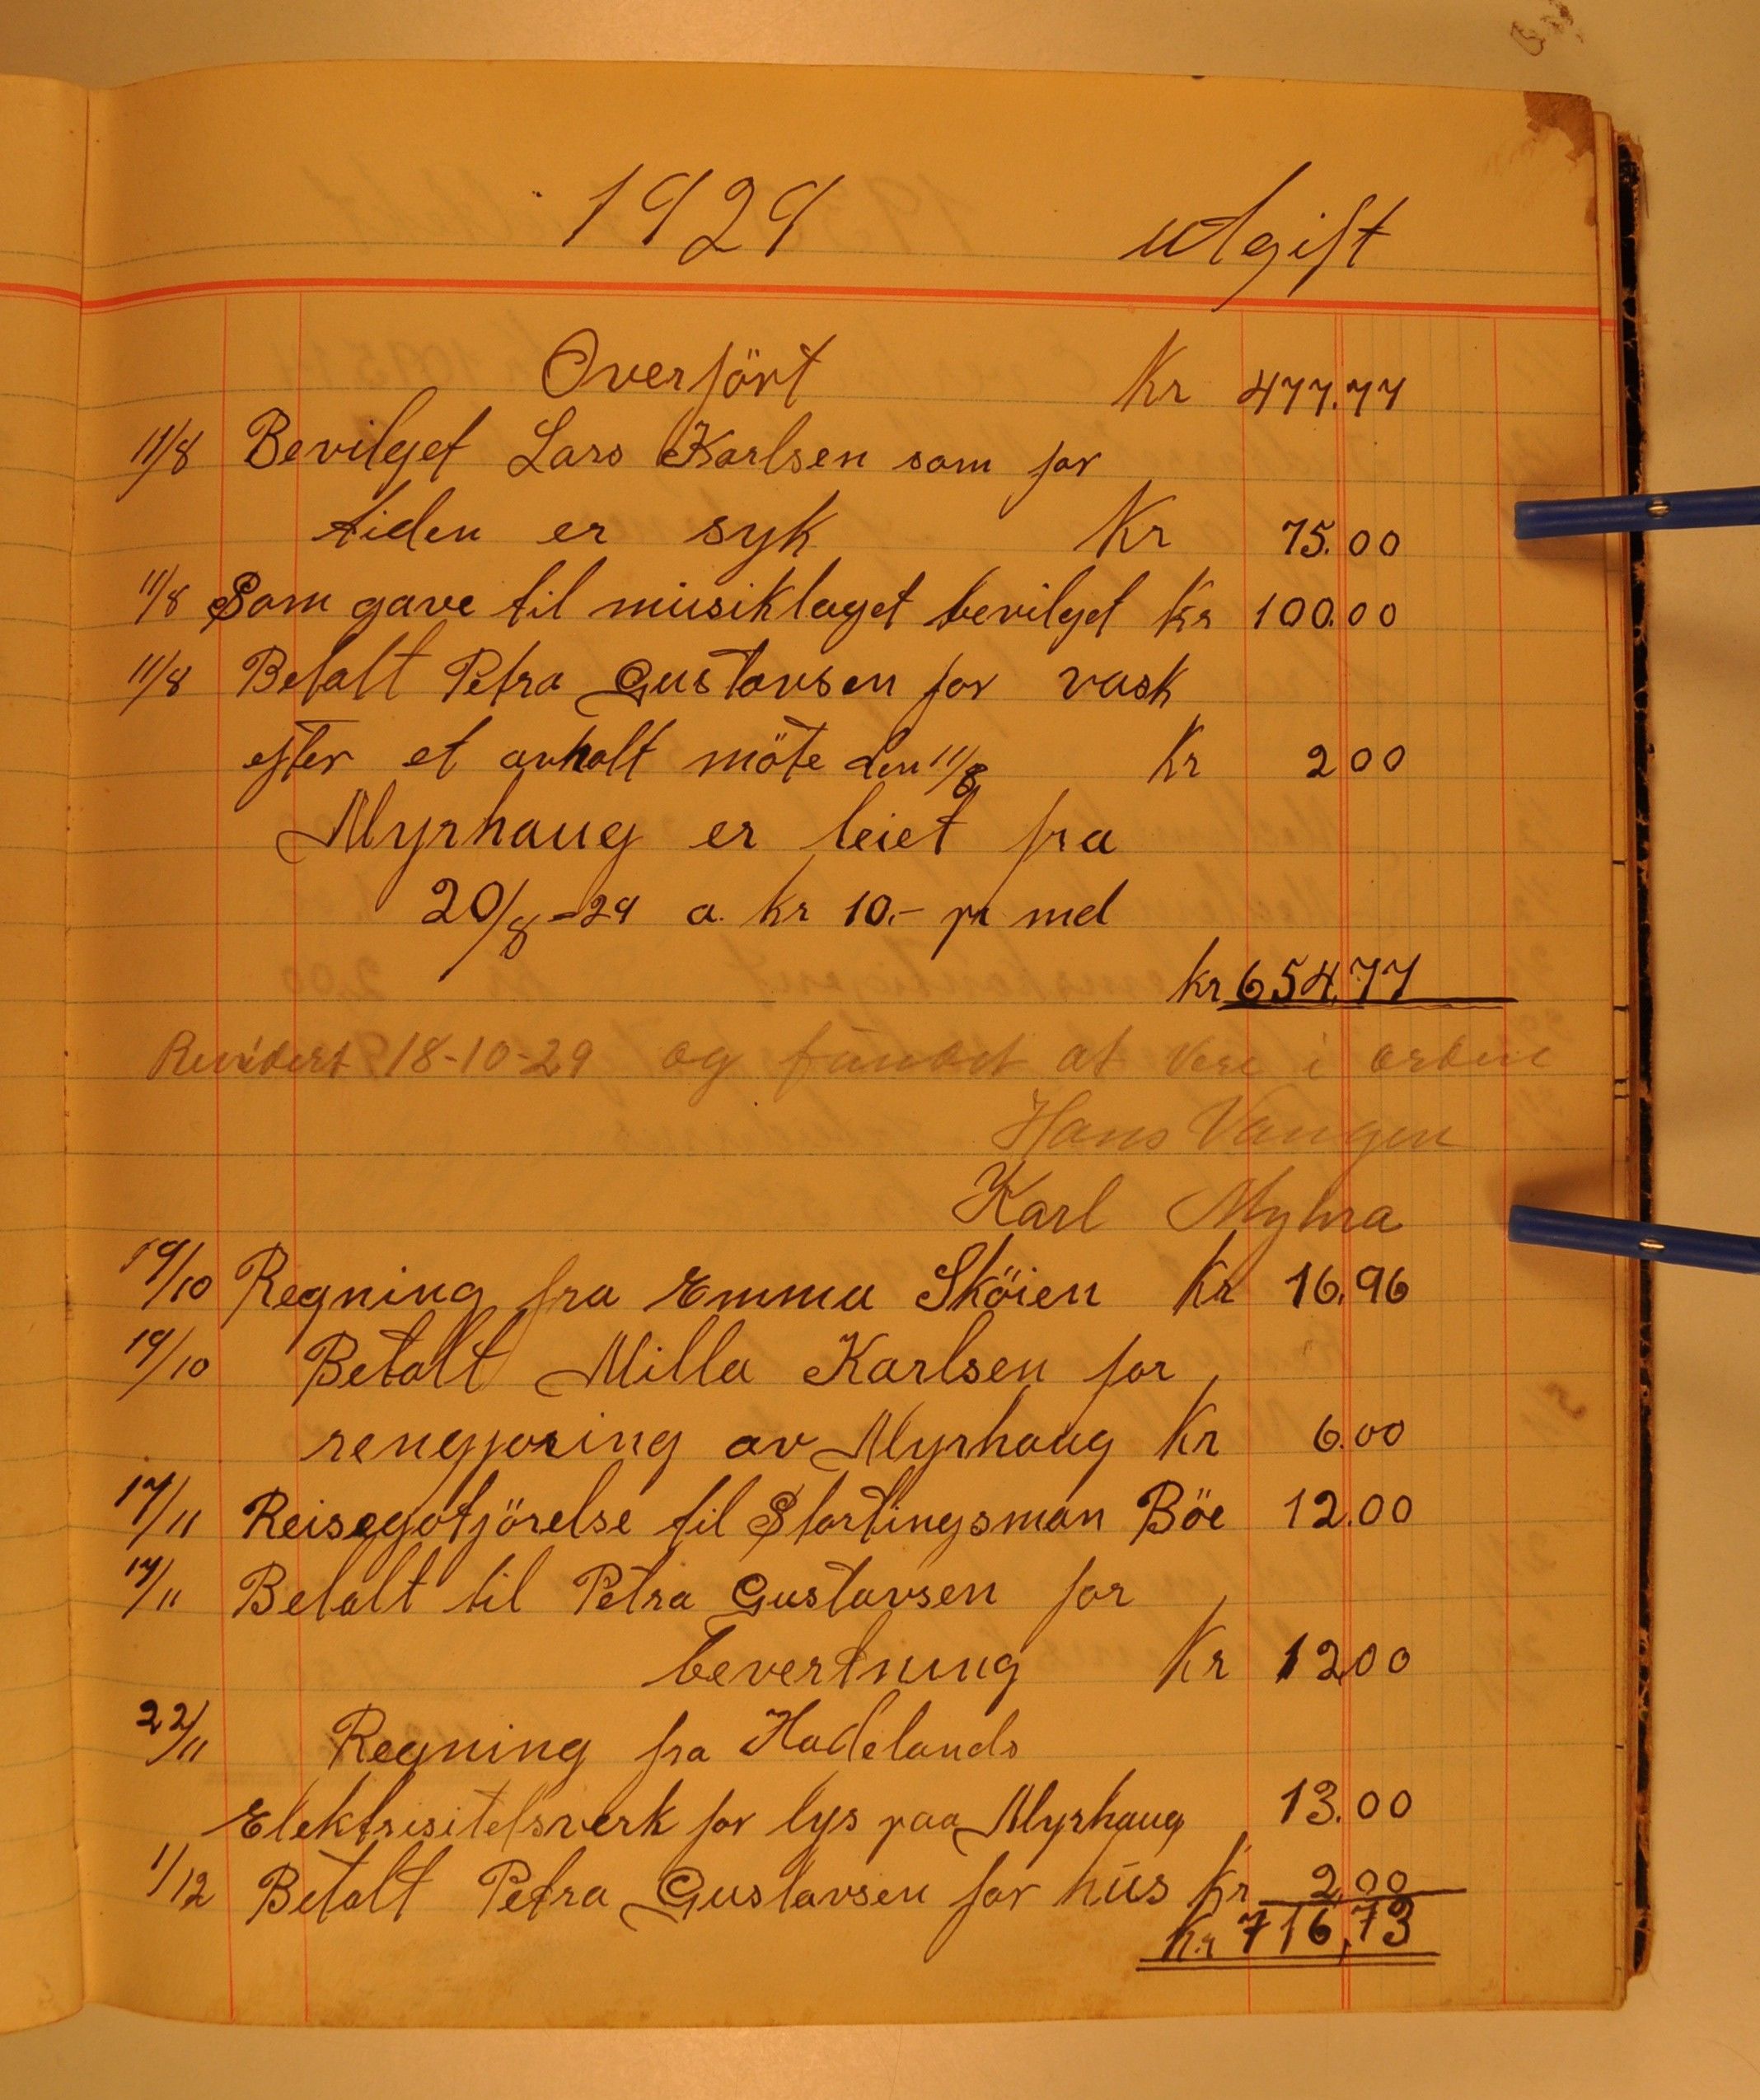 1929 utgift
Overfört Kr 477.77
11/8 Bevilget Lars Karlsen som for
tiden er syk Kr 75.00
11/8 Som gave til musiklaget bevilget Kr 100.00
11/8 Betalt Petra Gustavsen for vask
efter et avholt möte den 11/8 Kr 2 00
Myrhaug er leiet fra
20/8-29 a. kr 10.- pr md
kr 654,77
Revidert 18-10-29 og fundet at vere i orden
Hans Vangen
Karl Myhra
19/10 Regning fra Emma Sköien Kr 16.96
19/10 Betalt Milla Karlsen for
rengjoring av Myrhaug Kr 6.00
17/11 Reisegotjörelse til Stortingsman Böe 12.00
17/11 Betalt til Petra Gustavsen for
bevertning Kr 12,00
22/11 Regning fra Hadelands
Elektrisitetsverk for lys paa Myrhaug 13.00
1/12 Betalt Petra Gustavsen for hus Kr 2,00
Kr 716,73